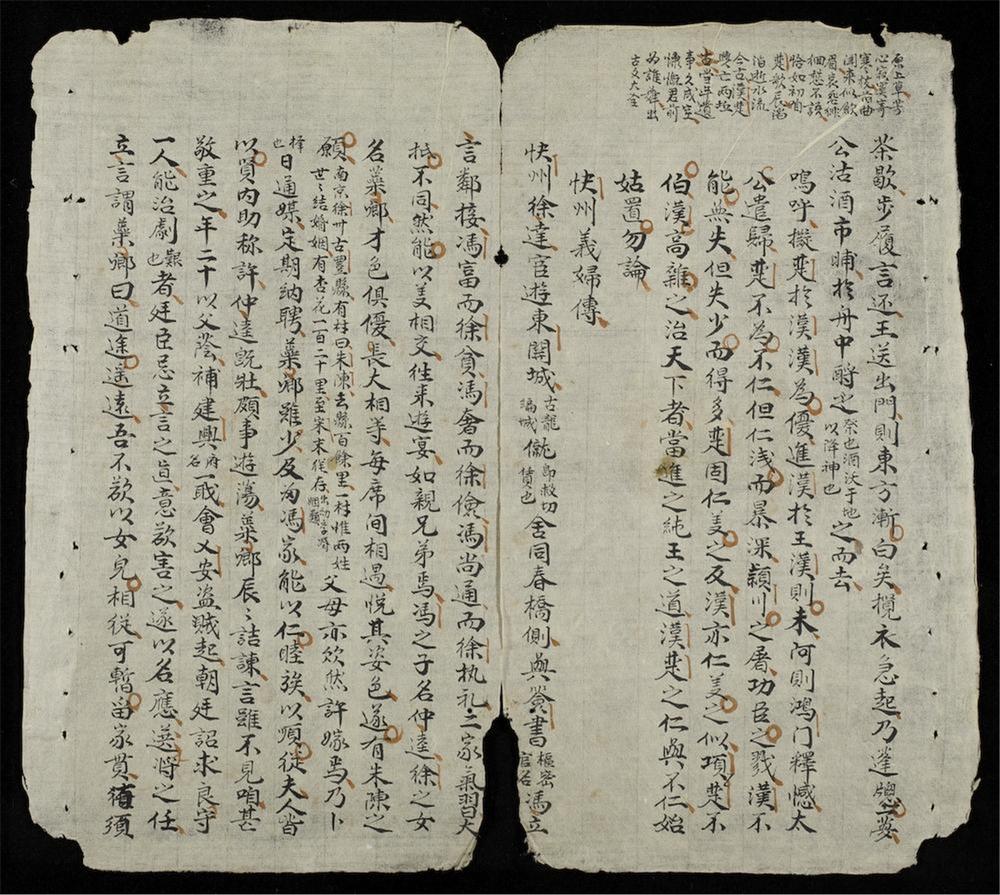 原上草芳
心寂寞寄
寒枝旧曲
聞來似歛
眉哀怨徘
徊愁不語
恰如初𦗟
楚歌辰滔
滔逝水流
今古漢楚
興亡兩坵
古當年遺
事久成空
慷慨君前
为誰舞出
古文大全
茶歇步履言还王送出門則東方漸白矣攬衣急起乃蓬牕上英
公沽酒市晡於舟中酹之祭也酒沃于地以降神也之而去
嗚呼擬楚於漢漢為優進漢於王漢則未何則鴻门釋憾太
公遣歸楚不為不仁但仁浅而暴深頴川之屠功臣之戮漢不
能無失但失少而得多楚固仁義之反漢亦仁義之似項楚不
伯漢高雜之治天下者當進之純王之道漢楚之仁與不仁始
姑置勿論
快州義婦傳
快州徐達官遊東関城古龍編城僦即救切賃也舍同春橋側與簽書樞密官名馮立
言鄰接馮富而徐貧馮奢而徐儉馮尚通而徐执礼二家氣習大
抵不同然能以義相交徃来遊宴如親兄弟焉馮之子名仲逵徐之女
名蘂卿才色俱優長大相等每席间相遇悦其姿色遂有朱陳之
願南京徐州古豐縣有村曰朱陳去縣百餘里一村惟两姓世〻結婚姻有杏花一百二十里至宋末猶存父母亦欣然許嫁焉乃卜
择也日通媒定期纳聘蘂卿雖少及为馮家能以仁睦族以順從夫人皆
以賢内助称許仲逵既壮頗事遊蕩蘂卿辰〻詰諫言雖不見咱甚
敬重之年二十以父蔭補建興府名职會乂安盗賊起朝廷詔求良守
一人能治劇艱也者廷臣忌立言之直意欲害之遂以名應选将之任
立言謂蘂卿曰道途遥遠吾不欲以女兒相從可暫畄家貫須